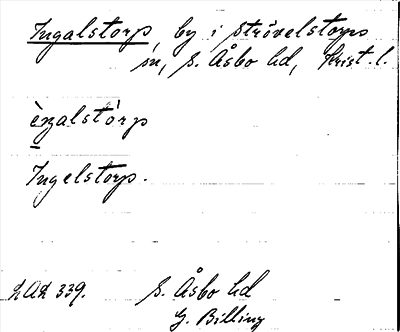 Ingalstorp, by i Strövelstorps
sn, S. Åsbo hd, Krist. l.
èŋalstòrp
Ingelstorp.
LAL 339. S. Åsbo hd
G. Billing